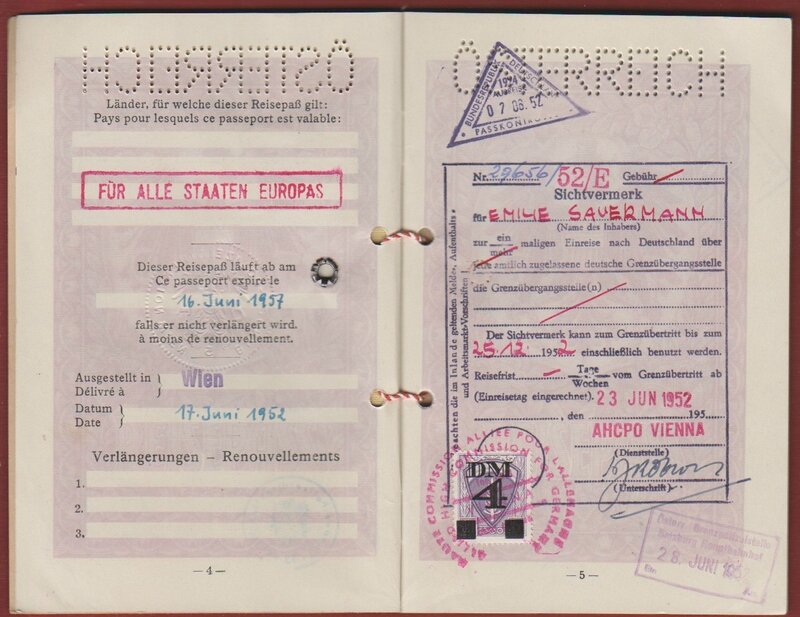 ÖSTERREICH
Länder, für welche dieser Reisepaß gilt:
Pays pour lesquels ce passeport est valable:
FÜR ALLE STAATEN EUROPAS
Dieser Reisepaß läuft ab am
Ce passeport expire le
16. Juni 1957
falls er nicht verlängert wird.
à moins de renouvellement.
Ausgestellt in
Délivré à
Wien
Datum
Date
17. Juni 1952
Verlängerungen – Renouvellements
1.
2.
3.
– 4 –
ÖSTERREICH
BUNDESREPUBLIK
07 08. 52
Nr. 29656/52/E Gebühr
Sichtvermerk
für EMILIE SAUERMANN
(Name des Inhabers)
zur ein maligen Einreise nach Deutschland über
mehr
jede amtlich zugelassene deutsche Grenzübergangsstelle
die Grenzübergangsstelle(n)
Der Sichtvermerk kann zum Grenzübertritt bis zum
25.12. 1952 einschließlich benutzt werden.
Reisefrist Tage vom Grenzübertritt ab
Wochen
(Einreisetag eingerechnet). 23 JUN 1952
, den 195
AHCPO VIENNA
(Dienststelle)
(Unterschrift)
beachten die im Inlande geltenden Melde, Aufenthalts-
und Arbeitsmarkt-Vorschriften!
HAUTE COMMISSION ALLIÉE POUR L'ALLEMAGNE
ALLIED HIGH COMMISSION FOR GERMANY
DM
4
Salzburg Hauptbahnhof
28. JUNI 1952
– 5 –